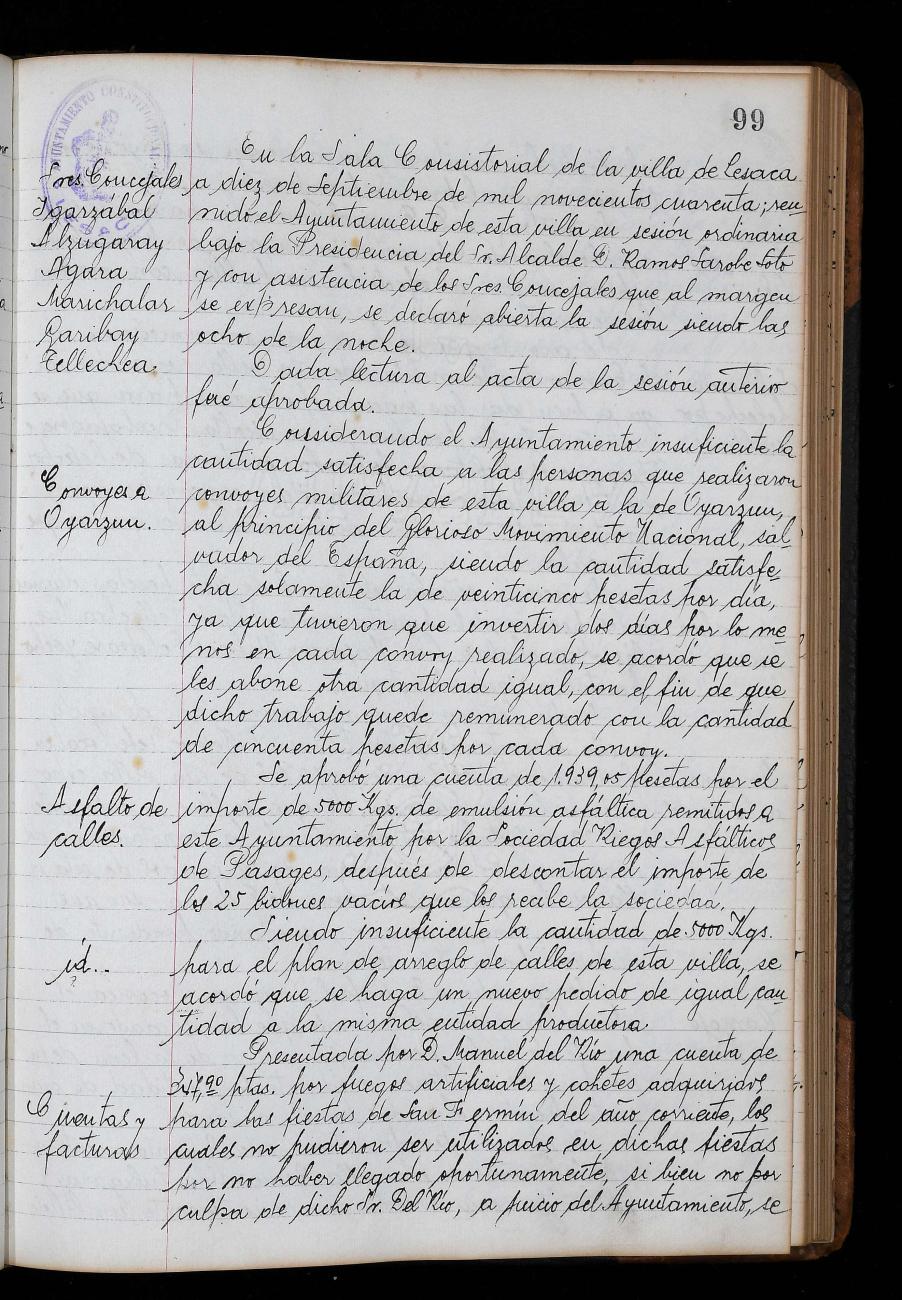 99
AYUNTAMIENTO CONSTITUCIONAL
En la Sala Consistorial de la villa de Lesaca
Sres. Concejales
Igarzábal
Alzugaray
Agara
Marichalar
Garibay
Tellechea.
a diez de Septiembre de mil novecientos cuarenta; reu-
nido el Ayuntamiento de esta villa en sesión ordinaria
bajo la Presidencia del Sr. Alcalde D. Ramos Sarobe Soto
y con asistencia de los Sres. Concejales que al margen
se expresan, se declaró abierta la sesión siendo las
ocho de la noche.
Dada lectura al acta de la sesión anterior
fué aprobada.
Convoyes a
Oyarzun.
Considerando el Ayuntamiento insuficiente la
cantidad satisfecha a las personas que realizaron
convoyes militares de esta villa a la de Oyarzun,
al principio del Glorioso Movimiento Nacional, sal-
vador del España, siendo la cantidad satisfe-
cha solamente la de veinticinco pesetas por día,
ya que tuvieron que invertir dos días por lo me-
nos en cada convoy realizado, se acordó que se
les abone otra cantidad igual, con el fin de que
dicho trabajo quede remunerado con la cantidad
de cincuenta pesetas por cada convoy.
Asfalto de
calles.
Se aprobó una cuenta de 1.939,05 pesetas por el
importe de 5000 Kgs. de emulsión asfáltica remitidos a
este Ayuntamiento por la Sociedad Riegos Asfálticos
de Pasages, después de descontar el importe de
los 25 bidones vacíos que los recibe la sociedad.
id..
Siendo insuficiente la cantidad de 5000 Kgs.
para el plan de arreglo de calles de esta villa, se
acordó que se haga un nuevo pedido de igual can-
tidad a la misma entidad productora.
Cuentas y
facturas
Presentada por D. Manuel del Río una cuenta de
347,90 ptas. por fuegos artificiales y cohetes adquiridos
para las fiestas de San Fermín del año corriente, los
cuales no pudieron ser utilizados en dichas fiestas
por no haber llegado oportunamente, si bien no por
culpa de dicho Sr. Del Río, a juicio del Ayuntamiento, se